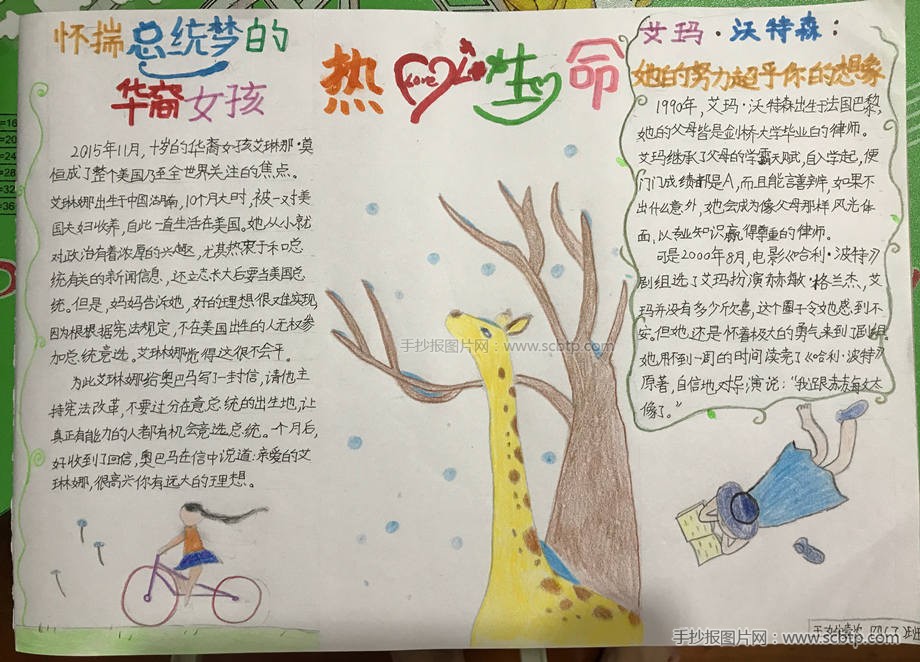 怀揣总统梦的
华裔女孩
2015年11月,十岁的华裔女孩艾琳娜·莫
恒成了整个美国乃至全世界关注的焦点。
艾琳娜出生于中国湖南,10个月大时,被一对美
国夫妇收养,自此一直生活在美国。她从小就
对政治有着浓厚的兴趣,尤其热衷于和总
统有关的新闻信息,还立志长大后要当美国总
统。但是,妈妈告诉她,好的理想很难实现,
因为根据宪法规定,不在美国出生的人无权参
加总统竞选。艾琳娜觉得这很不公平。
为此艾琳娜给奥巴马写了一封信,请他主
持宪法改革,不要过分在意总统的出生地,让
真正有能力的人都有机会竞选总统。个月后,
好收到了回信,奥巴马在信中说道:亲爱的艾
琳娜,很高兴你有远大的理想。
热爱生命
Love
艾玛·沃特森:
她的努力超乎你的想象
1990年,艾玛·沃特森出生于法国巴黎,
她的父母皆是剑桥大学毕业的律师。
艾玛继承了父母的学霸天赋,自入学起,便
门门成绩都是A,而且能言善辨,如果不
出什么意外,她会成为像父母那样风光体
面,以专业知识赢得尊重的律师。
可是2000年8月,电影《哈利·波特》
剧组选了艾玛扮演赫敏·格兰杰,艾
玛并没有多少欣喜,这个圈子令她感到不
安。但她还是怀着极大的勇气来到了剧组。
她用不到一周的时间读完了《哈利·波特》
原著,自信地对导演说:“我跟赫敏太
像了。”
手抄报图片网:www.scbtp.com
四(7)班
手抄报图片网:www.scbtp.com